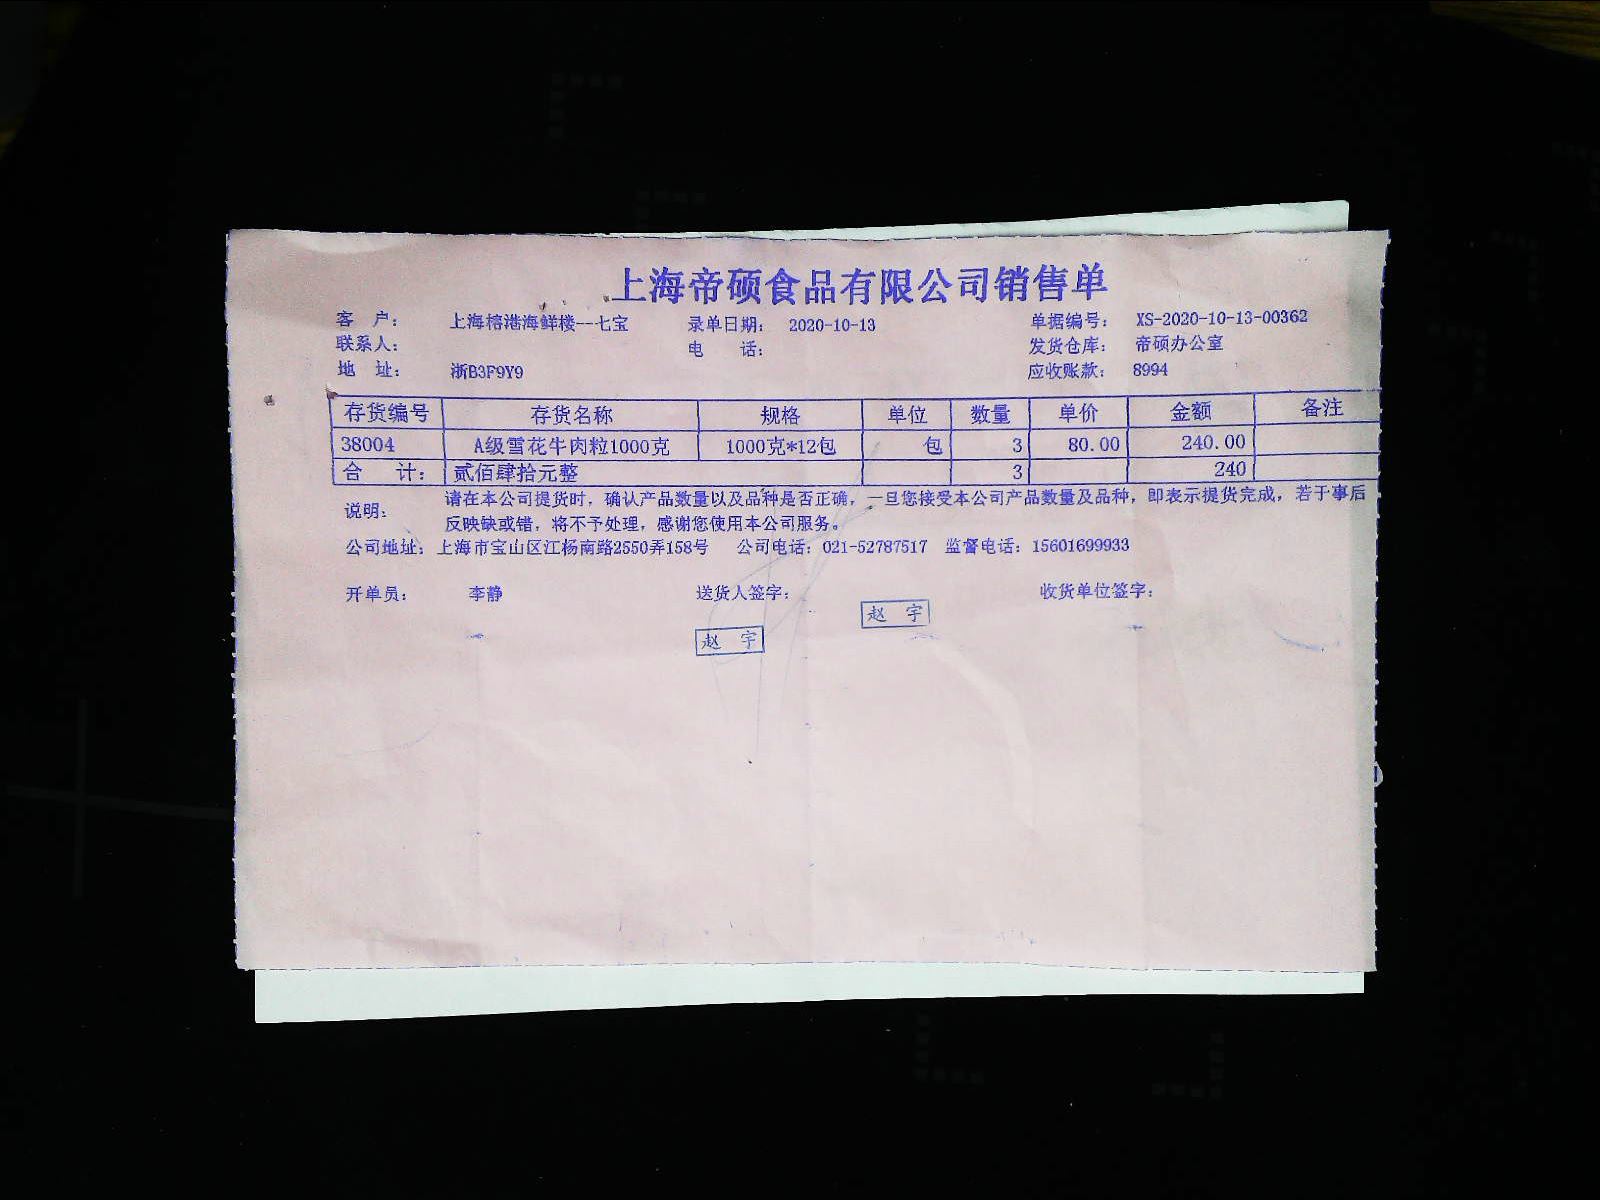 上海帝硕食品有限公司销售单
客 户： 上海榕港海鲜楼--七宝 录单日期： 2020-10-13 单据编号： XS-2020-10-13-00362
联系人： 电 话： 发货仓库： 帝硕办公室
地 址： 浙B3F9Y9 应收账款： 8994
存货编号 存货名称 规格 单位 数量 单价 金额 备注
38004 A级雪花牛肉粒1000克 1000克*12包 包 3 80.00 240.00
合 计： 贰佰肆拾元整 3 240
说明： 请在本公司提货时，确认产品数量以及品种是否正确，一旦您接受本公司产品数量及品种，即表示提货完成，若于事后
反映缺或错，将不予处理，感谢您使用本公司服务。
公司地址： 上海市宝山区江杨南路2550弄158号 公司电话：021-52787517 监督电话：15601699933
开单员： 李静 送货人签字： 收货单位签字：
赵 宇
赵 宇